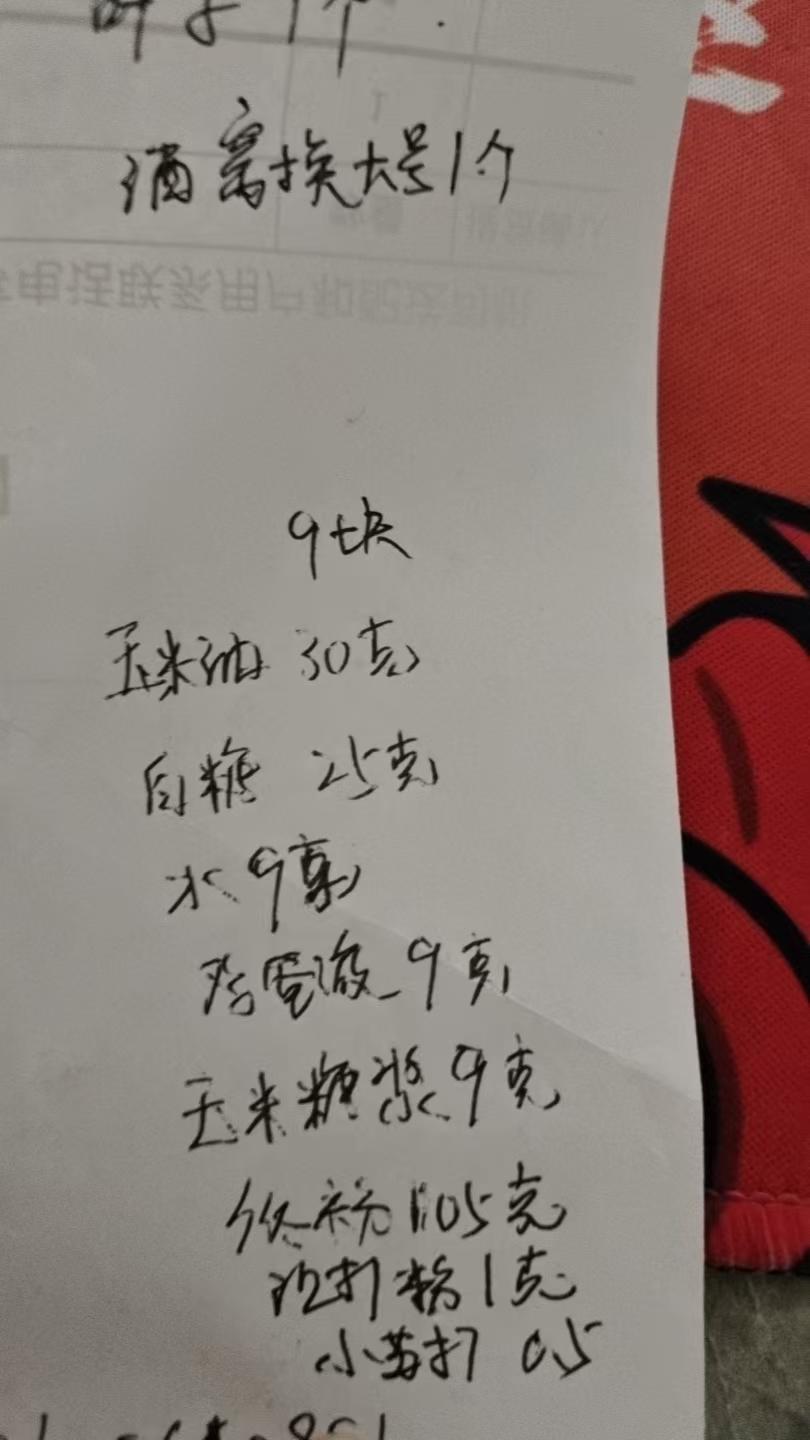 叶子1个.
酒窝挨大号1个
9块
玉米油 30克
白糖 25克
水9豪
鸡蛋液 9克
玉米糖浆 9克
低粉 105克
泡打粉 1克
小苏打 0.5